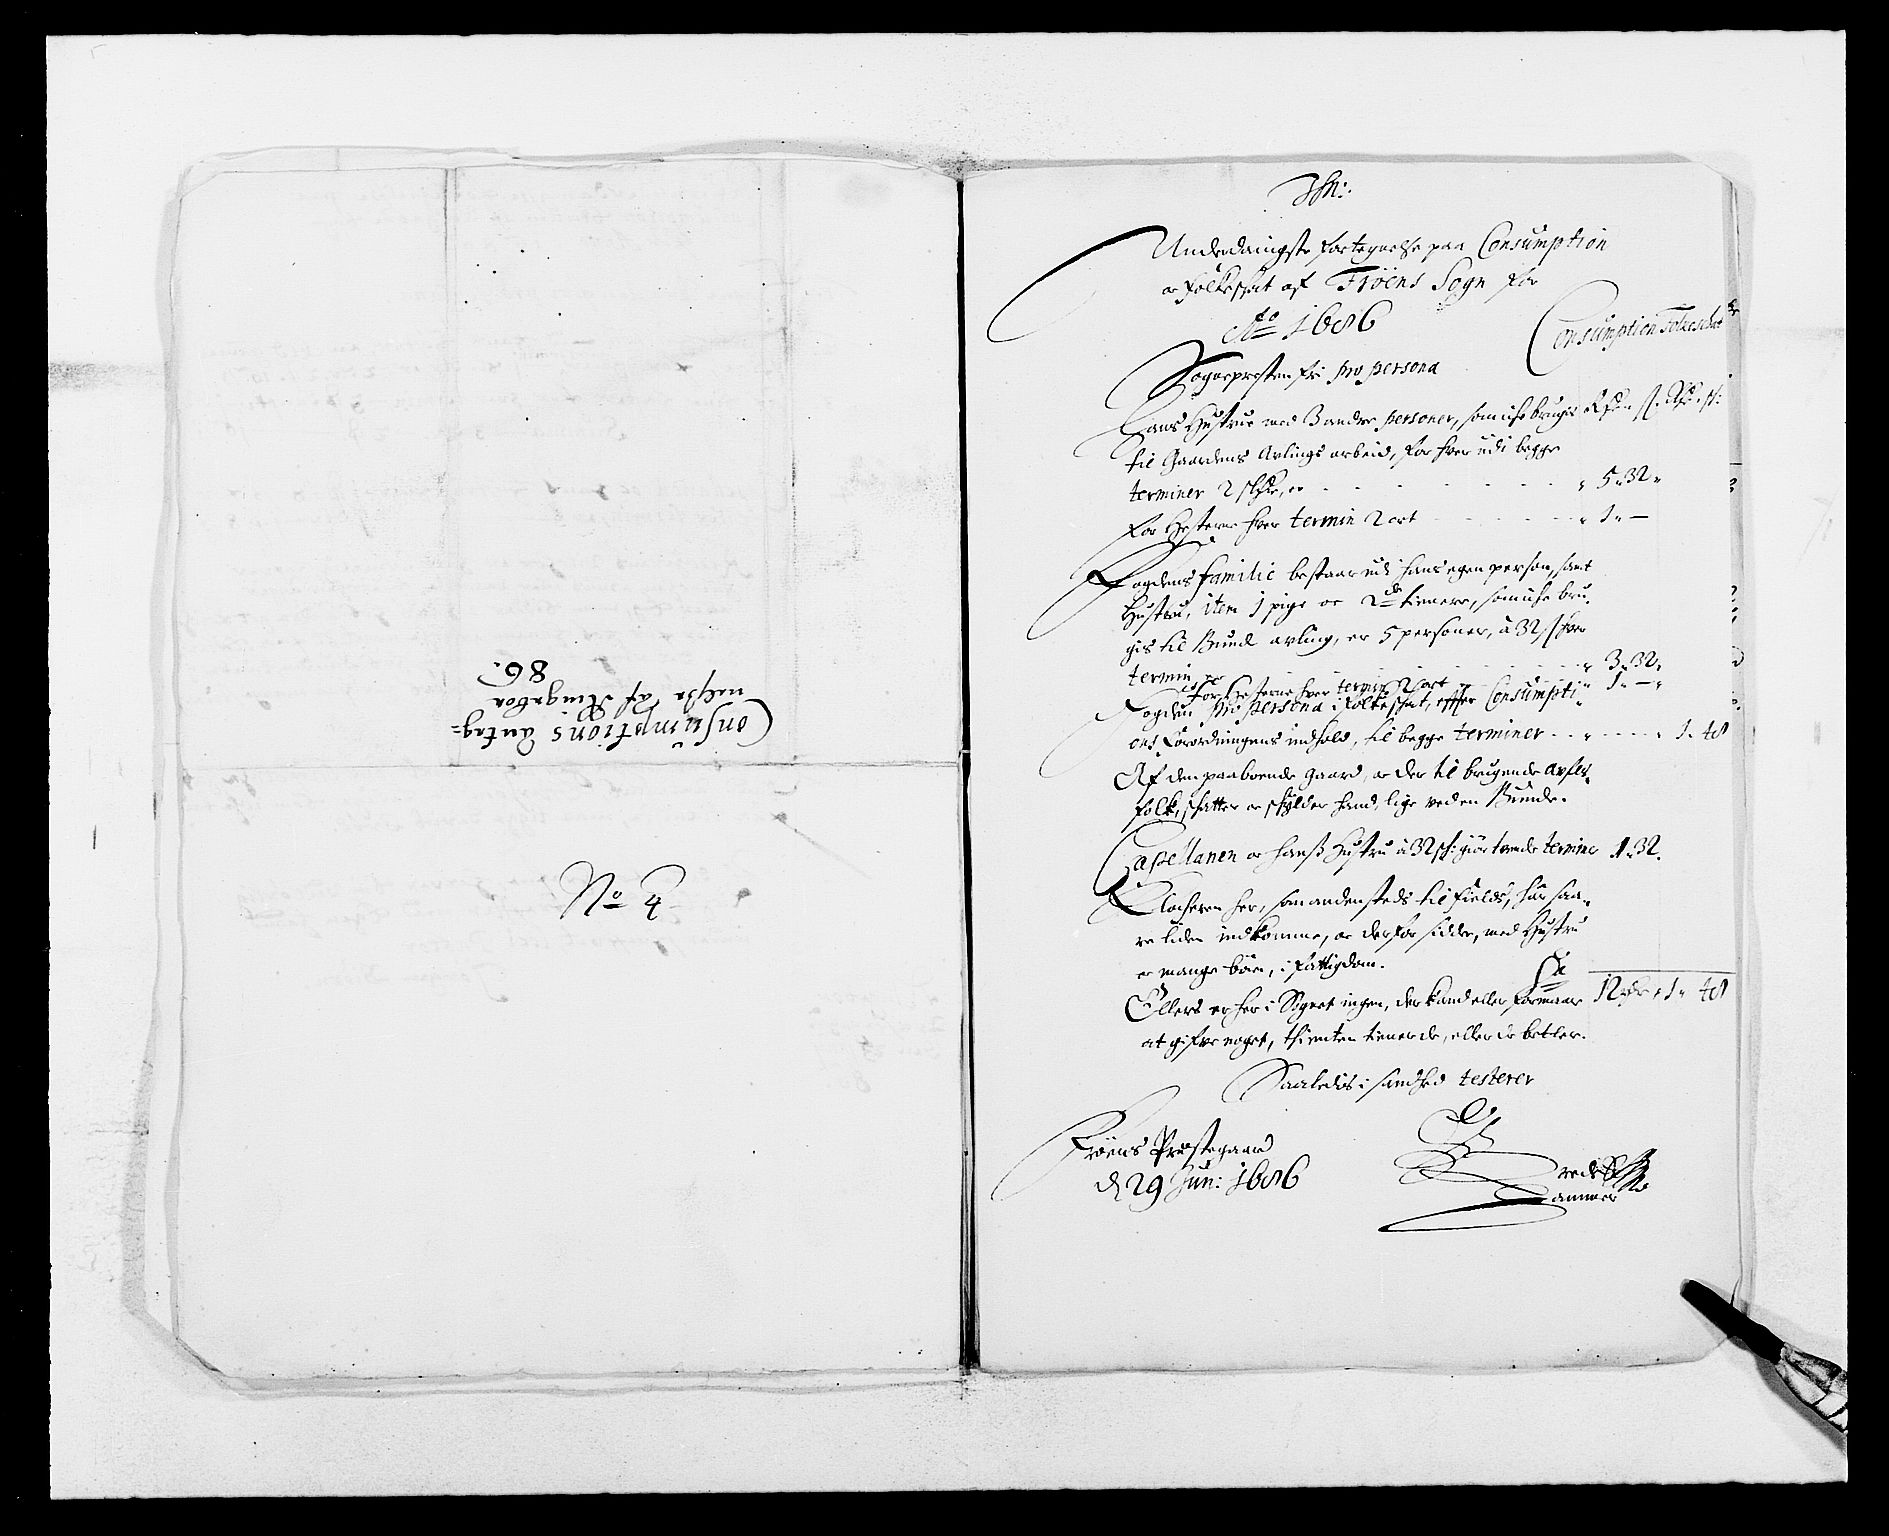 Consumptions Anteg=
nelse af Ringeboe
86.
No 4
Underdanigste fortegnelse paa Consumption
oc folkeskat af Frøens Sogn for
Ao 1686
Consumption Folkeschat
Sognepresten fri pro persona
Hans Hustrue med 3 andre personer, som iche bruges
til Gaardens Avlings arbeid, for hver udi begge
terminer 2 , er - - - 5 " 32 "
for Hesterne hver termin 2 ort - - - " 1 " —
Fogdens familie bestaar udi hans egen person, samt
Hustru, item 1 pige oc 2de tienere, som iche bru,
gis til Bunde avling, er 5 personer, à 32 s hver
termin, er - - - " 3 " 32 "
for Hesterne hver termin 2 ort - - - " 1 " — "
Fogden pro persona i folkeskat, efter Consumpti,
ons Forordningens indhold, til begge terminer - - " - - - " 1 " 48
Af den paaboende Gaard, oc der til brugende avfls,
folk, skatter oc skylder hand, lige ved en Bunde.
Capellanen oc hanß Hustru à 32 sk: giør tvende termine 1 " 32.
Klocheren her, som andensteds til fields, har saa,
re liden indkomme, oc derfor sidder, med Hustru
oc mange børn, i fattigdom.
Sa 12 rdr " 1 " 48
Ellers er her i Sognet ingen, der kand eller formaar
at gifve noget, thi enten tiener de, eller de betler.
Saaledis i sandhed testerer
Frøens Præstegaard
d 29 Jun: 1686